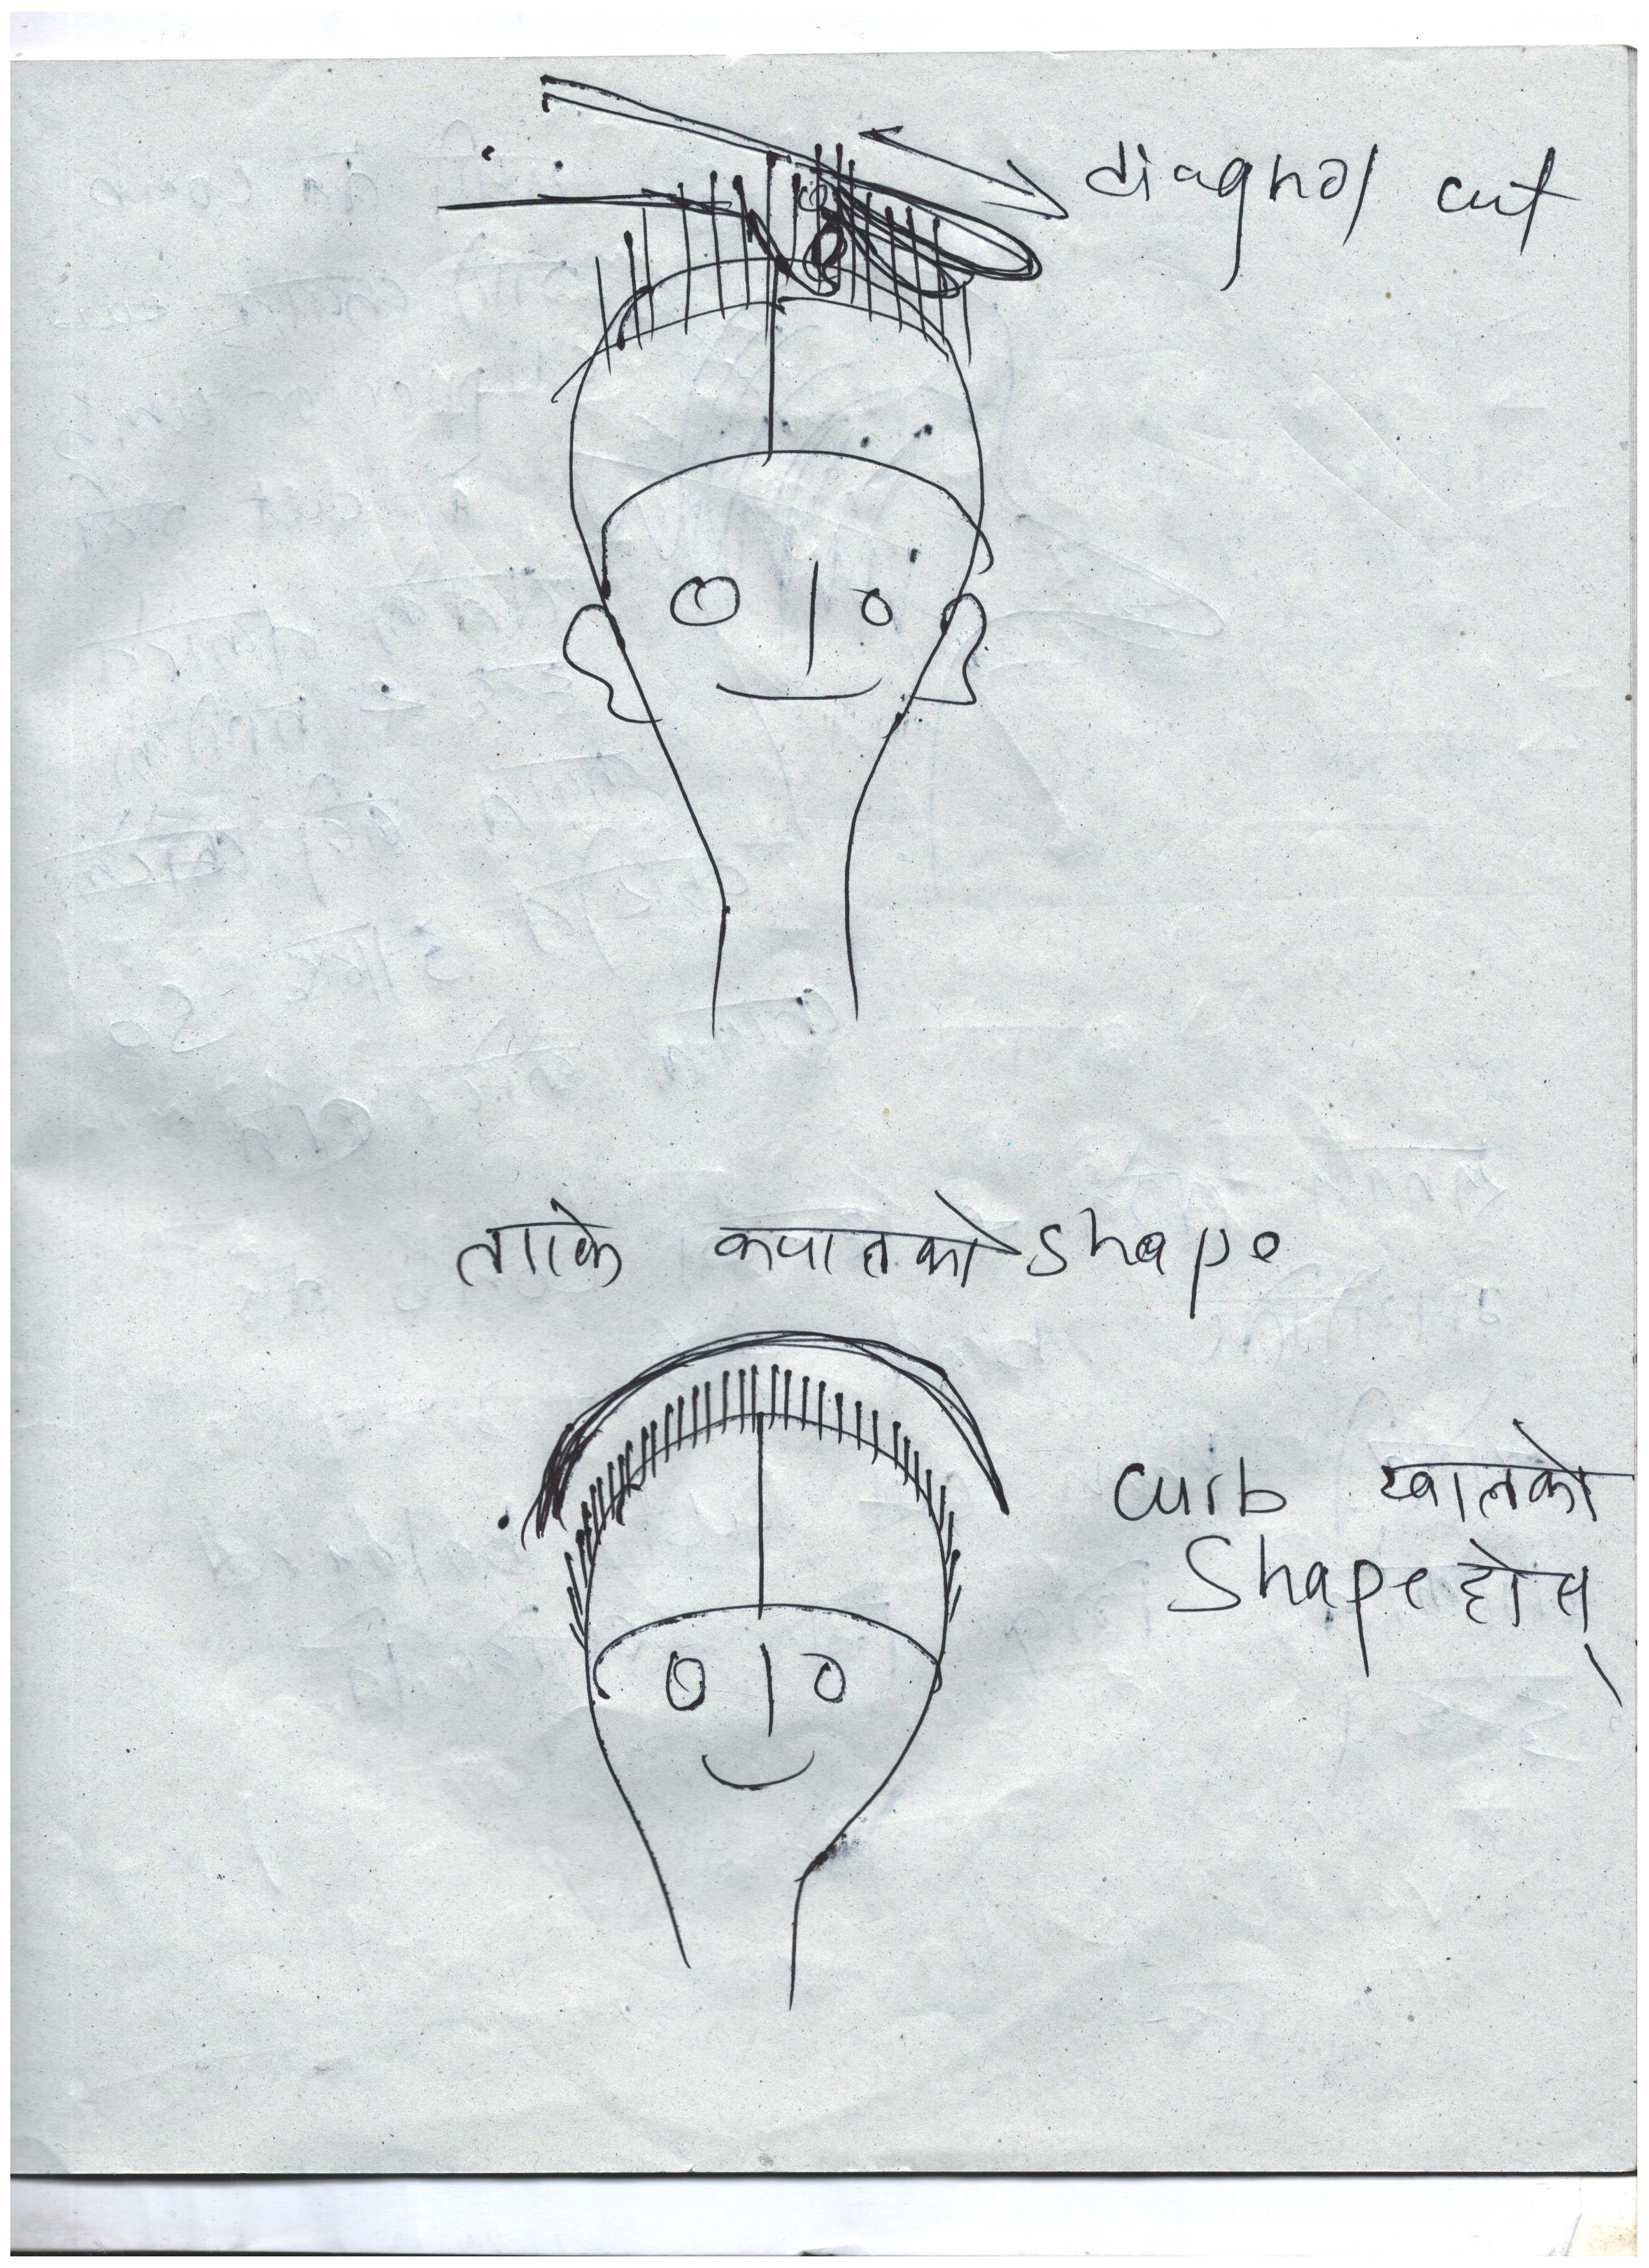 diagnol cut
ताकि कपालको shape
curb खालको
Shape होस्